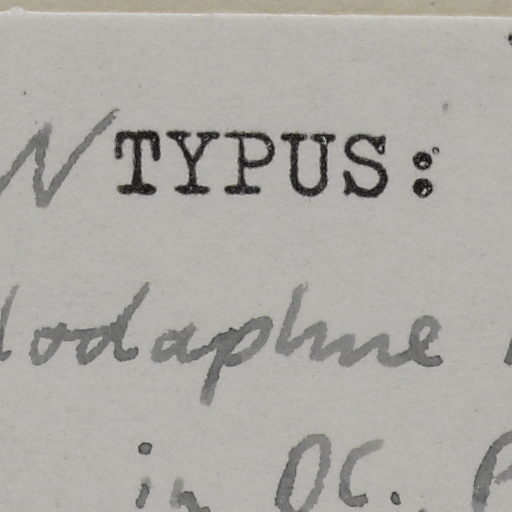 N TYPUS:
lodaphne
in DC.